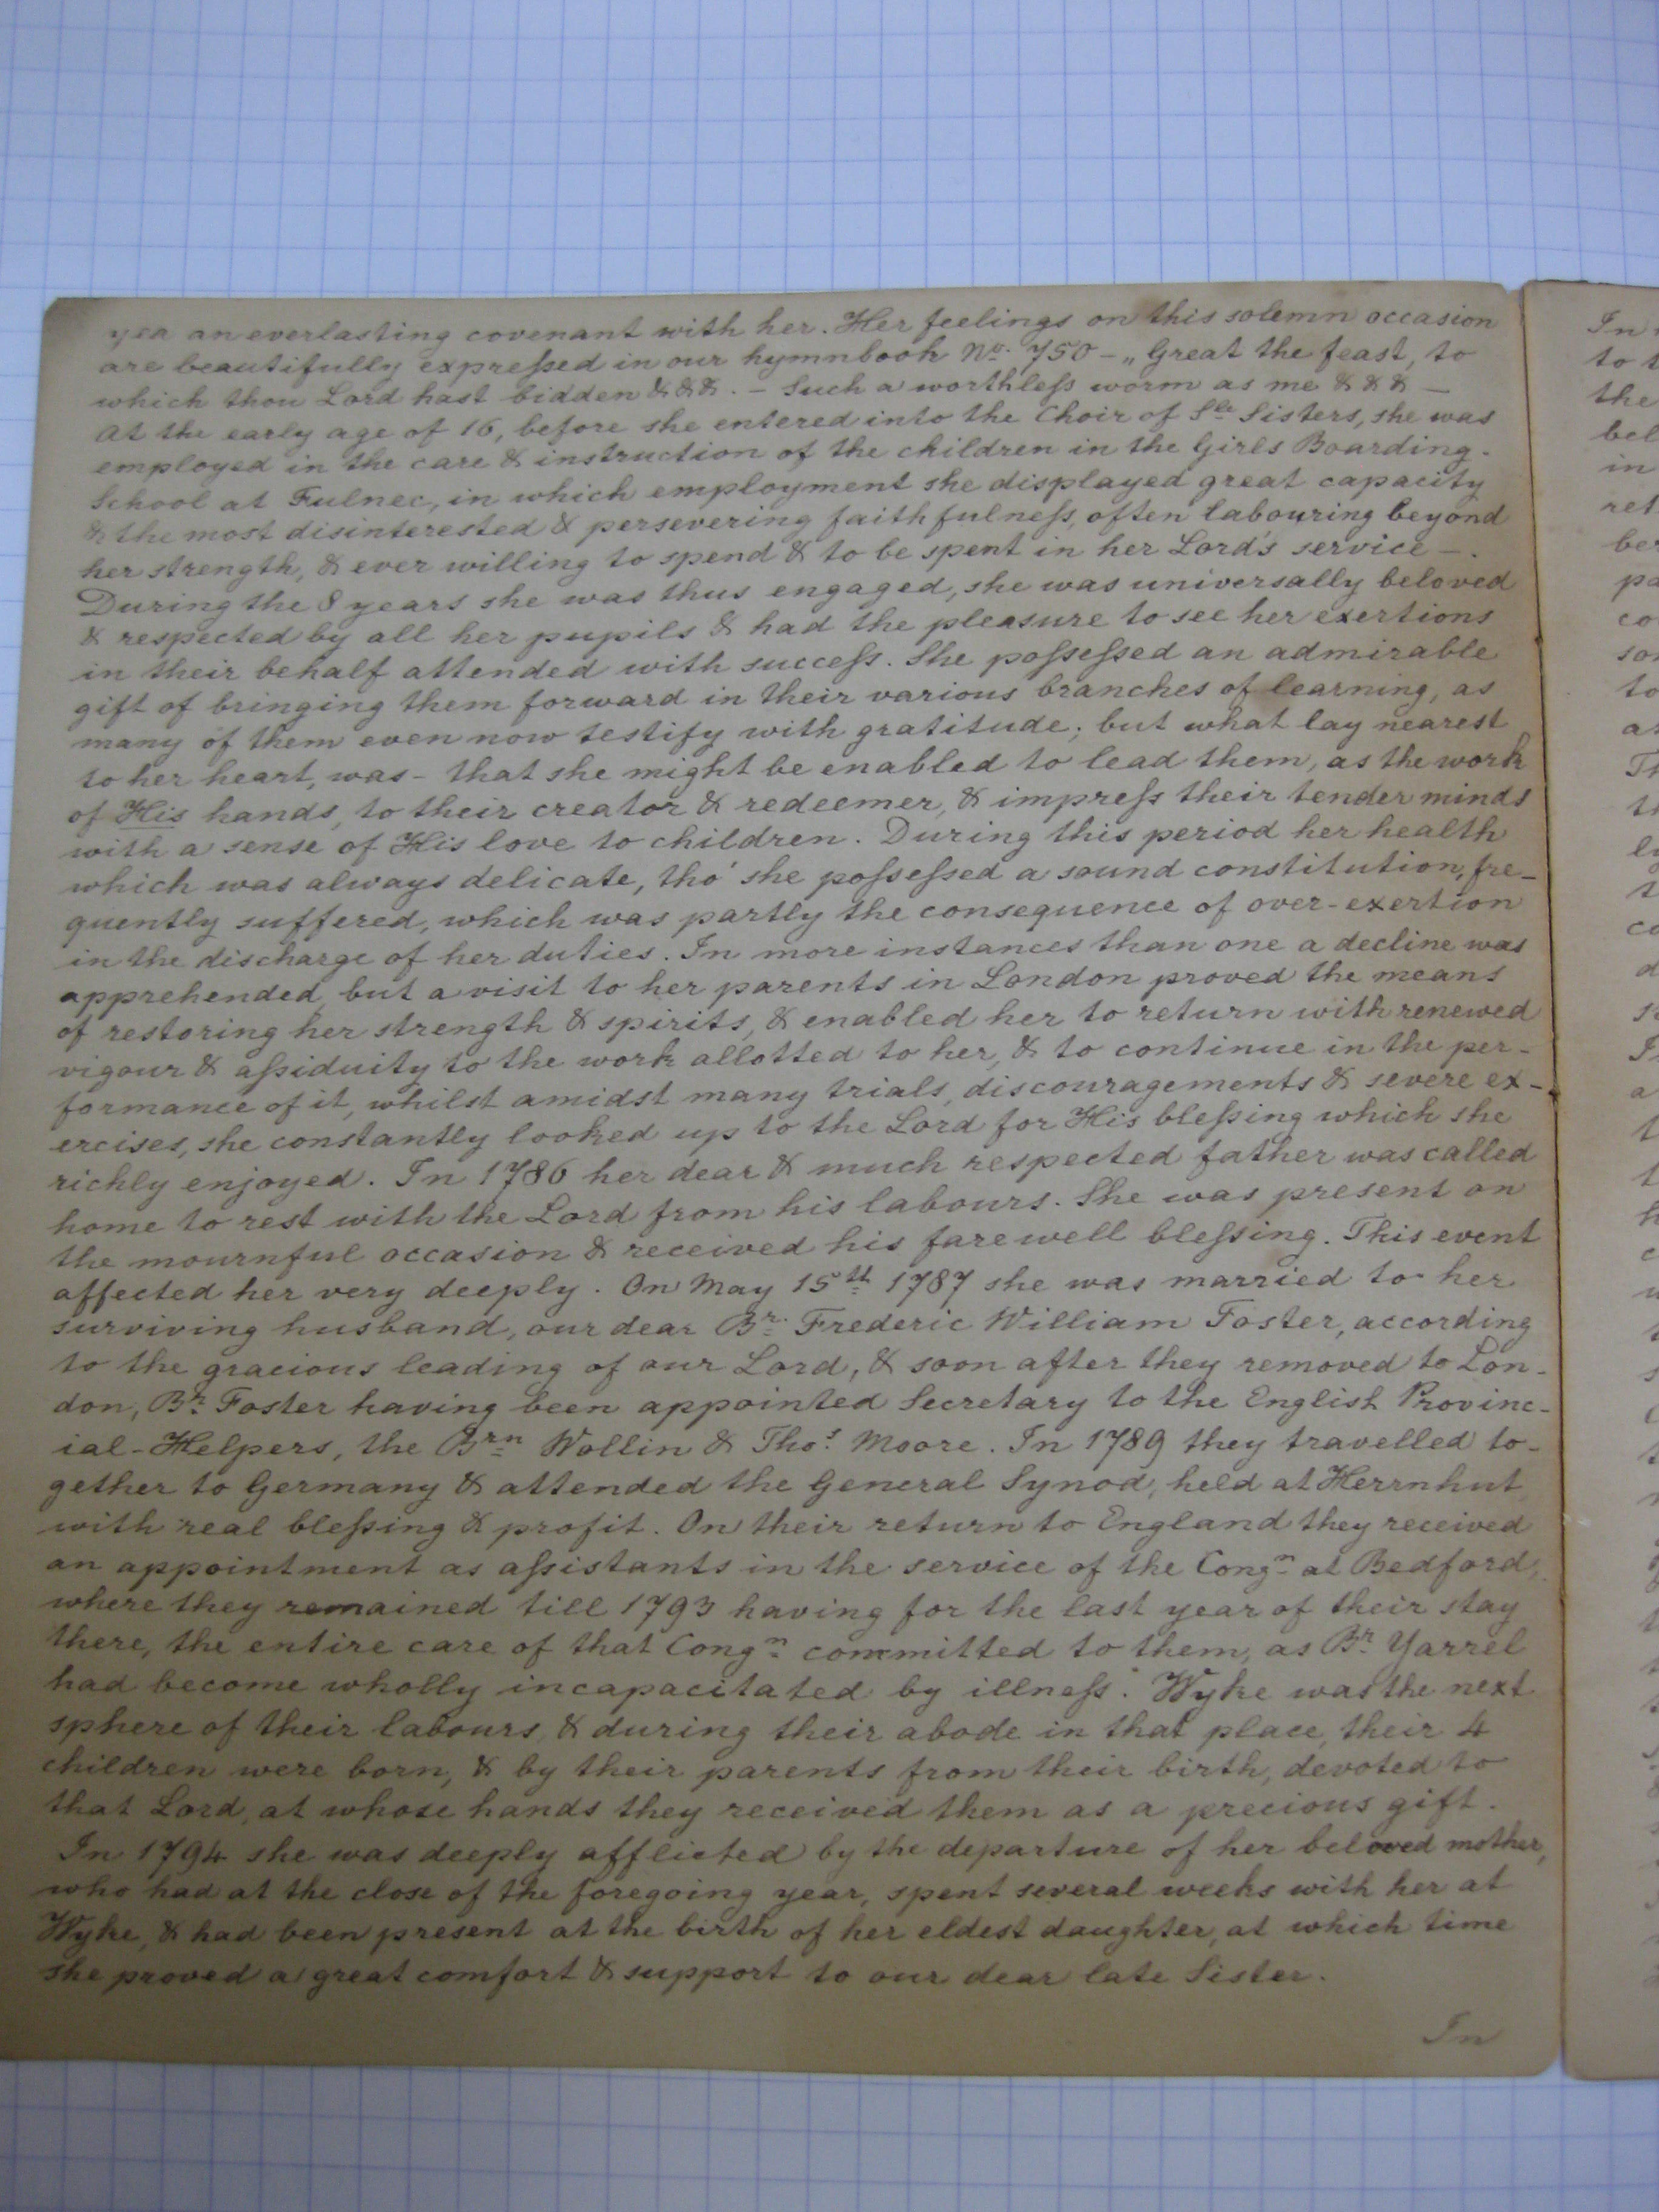 yea an everlasting covenant with her. Her feelings on this solemn occasion
are beautifully expreſsed in our hymnbook No. 750 – „ Great the feast, to
which thou Lord hast bidden &&&. – Such a worthleſs worm as me &&& –
At the early age of 16, before she entered into the Choir of Sle Sisters, she was
employed in the care & instruction of the children in the Girls Boarding-
School at Fulnec, in which employment she displayed great capacity
& the most disinterested & persevering faithfulneſs, often labouring beyond
her strength, & ever willing to spend & to be spent in her Lord's service –.
During the 8 years she was thus engaged, she was universally beloved
& respected by all her pupils & had the pleasure to see her exertions
in their behalf attended with succeſs. She poſseſsed an admirable
gift of bringing them forward in their various branches of learning, as
many of them even now testify with gratitude; but what lay nearest
to her heart, was – that she might be enabled to lead them, as the work
of His hands, to their creator & redeemer, & impreſs their tender minds
with a sense of His love to children. During this period her health
which was always delicate, tho' she poſseſsed a sound constitution, fre-
quently suffered, which was partly the consequence of over-exertion
in the discharge of her duties. In more instances than one a decline was
apprehended, but a visit to her parents in London proved the means
of restoring her strength & spirits, & enabled her to return with renewed
vigour & aſsiduity to the work allotted to her, & to continue in the per-
formance of it, whilst amidst many trials, discouragements & severe ex-
ercises, she constantly looked up to the Lord for His bleſsing which she
richly enjoyed. In 1786 her dear & much respected father was called
home to rest with the Lord from his labours. She was present on
the mournful occasion & received his farewell bleſsing. This event
affected her very deeply. On May 15th 1787 she was married to her
surviving husband, our dear Br. Frederic William Foster, according
to the gracious leading of our Lord, & soon after they removed to Lon-
don, Br. Foster having been appointed Secretary to the English Provinc-
ial-Helpers, the Brn Wollin & Thos. Moore. In 1789 they travelled to-
gether to Germany & attended the General Synod, held at Herrnhut,
with real bleſsing & profit. On their return to England they received
an appointment as aſsistants in the service of the Congn at Bedford,
where they remained till 1793 having for the last year of their stay
there, the entire care of that Congn committed to them, as Br. Yarrel
had become wholly incapacitated by illneſs. Wyke was the next
sphere of their labours, & during their abode in that place, their 4
children were born, & by their parents from their birth, devoted to
that Lord, at whose hands they received them as a precious gift.
In 1794 she was deeply afflicted by the departure of her beloved mother,
who had at the close of the foregoing year, spent several weeks with her at
Wyke, & had been present at the birth of her eldest daughter, at which time
she proved a great comfort & support to our dear late Sister.
In